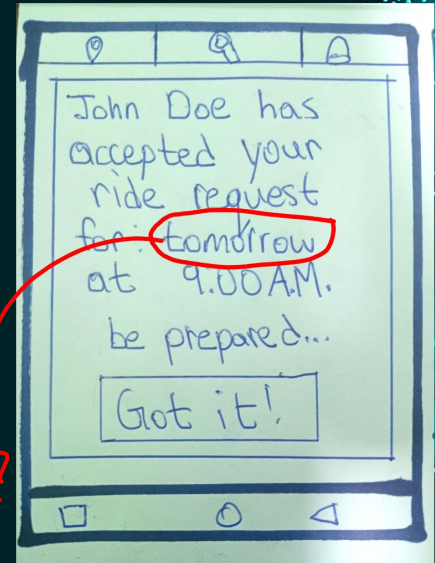 John Doe has
accepted your
ride request
for: tomorrow
at 9:00 A.M.
be prepared...
Got it!